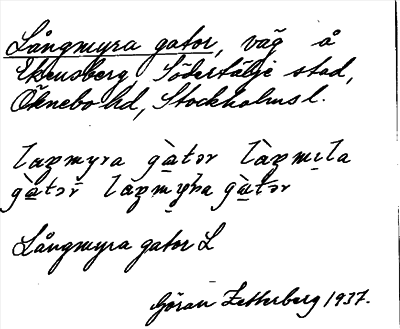 Långmyra gator, väg å
Ekensberg, Södertälje stad,
Öknebo hd, Stockholms l.
laŋmyra gàtər làŋmıla
gàtər laŋmyra gàtər
Långmyra gator L
Göran Zetterberg 1937.